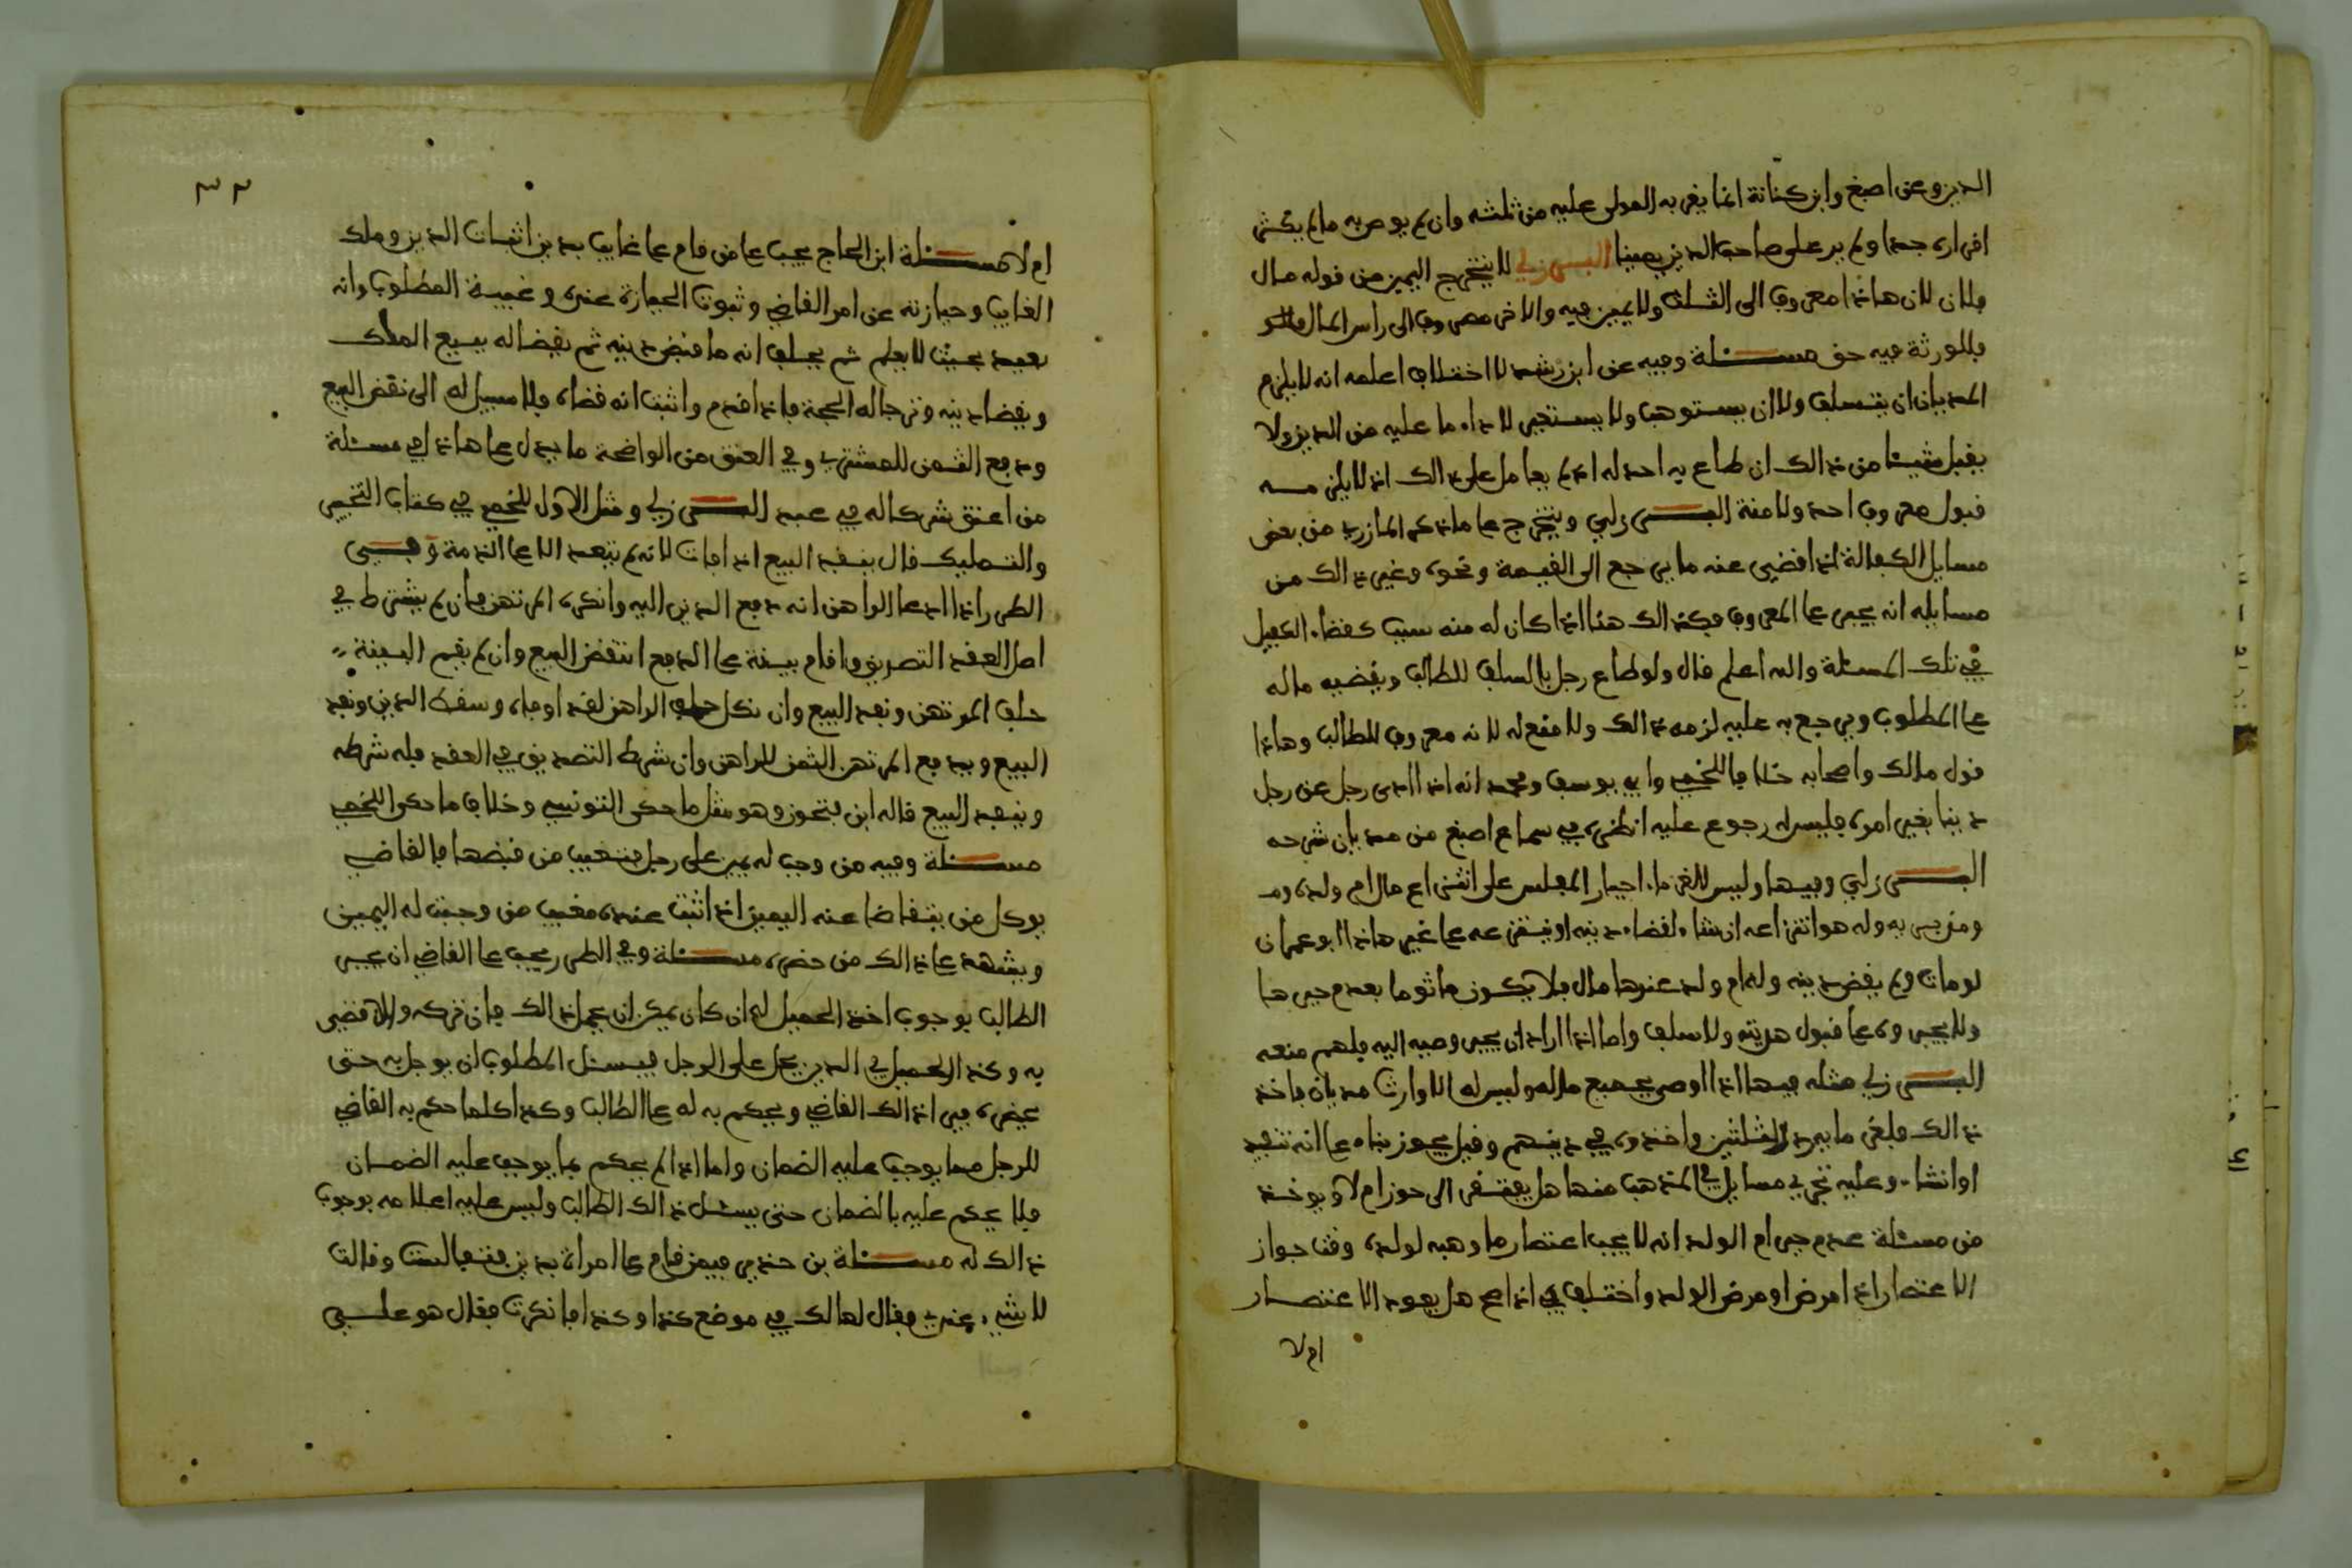 الدين وعن اصبغ وابن كنانة انما يغر به المولى عليه من ثلثه وان لم يوص به ما لم يكثر
اقراره جدا ولم ير على صاحب الدين يمينا البرزلي لا يتخرج اليمين من قوله مال
فلان لان هاذا معروف الى الثلث ولا يمين فيه والاخر مصروف الى راس المال
فللورثة فيه حق مسئلة وفيه عن ابن رشد لا اختلاف اعلمه انه لا يلزم
المديان ان يتسلف ولا ان يستوهب ولا يستجبر لاداء ما عليه من الدين ولا
يقبل شيئا من ذالك ان طاع به احد له اذ لم يعامل على ذالك اذ لا يلزمه
قبول معروف احد ولا منة البرزلي ويتخرج على ما ذكر المازري من بعض
مسايل الكفالة اذا قضى عنه ما يرجع الى القيمة ونحوه وغير ذالك من
مسايله انه يجبر على المعروف فكذالك هنا اذا كان له منه سبب كقضاء الكفيل
في تلك المسئلة والله اعلم قال ولو طاع رجل بالسلف للطالب ويقضيه ماله
على المطلوب ويرجع به عليه لزمه ذالك ولا مقع له لانه معروف للطالب وهاذا
قول مالك واصحابه خلافا للخمي وابي يوسف ومحمد انه اذا ادى رجل عن رجل
دينا بغير امره فليس له رجوع عليه انظره في سماع اصبغ من مديان شرحه
البرزلي وفيها وليس للغرماء اجبار المفلس على انتزاع مال ام ولده
ومدبره وله هو انتزاعه ان شاء لقضاء دينه او ينتزعه على غير هاذا ابو عمران
لو مات ولم يقض دينه وله ام ولد عندها مال فلا يكون ماثوما بعدم جبرها
ولا يجبروه على قبول هدية ولا سلف واما اذا اراد ان يجيز وصيه اليه فلهم منعه
البرزلي مثله فيها اذا اوصى بجميع ماله وليس له الا وارث مديان فاخذ
ذالك فلغرمايه رد الثلثين واخذوه في دينهم وقيل يجوز بناء على انه تنفيذ
او انشاء وعليه تجري مسايل في المذهب منها هل يفتقر الى حوز ام لا ويوخذ
من مسئلة عدم جبر ام الولد انه لا يجب اعتصار ما وهبه لولده وقت جواز
الاعتصار اذا مرض او مرض الولد واختلف في اذا صح هل يعود الاعتصار
ام لا
٣٣
ام لا مسئلة ابن الحاج يجب على من قام على غايب بدين اثبات الدين وملك
الغايب وحيازته عن امر القاضي وثبوت الحيازة عنده وغيبة المطلوب وانه
بعيد بحيث لا يعلم ثم يحلف انه ما قبض دينه ثم يقضى له ببيع الملك
ويقضا دينه وترجا له الحجة فاذا قدم واثبت انه قضاه فلا سبيل له الى نقض البيع
ودفع الثمن للمشتري وفي العتق من الواضحة ما يدل على هاذا في مسئلة
من اعتق شركا له في عبد البرزلي ومثل الاول للخمي في كتاب التخيير
والتمليك قال ينفذ البيع اذا فات لانه لم يتعد الا على الذمة وفي
الطرر اذا ادعا الراهن انه دفع الدين اليه وانكره المرتهن فان لم يشترط في
اصل العقد التصديق واقام بينة على الدفع انتقض البيع وان لم يقم البينة
حلف المرتهن ونفد البيع وان نكل حلف الراهن لقد اوفاه وسقط الدين ونفد
البيع ويدفع المرتهن الثمن للراهن وان شرط التصديق في العقد فله شرطه
وينفد البيع قاله ابن فتحون وهو مثل ما حكى التونسي وخلاف ما حكى اللخمي
مسئلة وفيه من وجب له يمين على رجل فتغيب من قبضها فالقاضي
يوكل من يتقاضا عنه اليمين اذا اثبت عنده مغيب من وجبت له اليمين
ويشهد على ذالك من حضره مسئلة وفي الطرر يجب على القاضي ان يجبر
الطالب بوجوب اخذ الحميل له ان كان يمكن ان يجهل ذالك فان تركه والا قضى
به وكذا الحميل في الدين يحل على الرجل فيسئل المطلوب ان يوجل به حتى
يحضره فيرى ذالك القاضي ويحكم به له على الطالب وكذا كلما حكم به القاضي
للرجل مما يوجب عليه الضمان واما اذا لم يحكم بما يوجب عليه الضمان
فلا يحكم عليه بالضمان حتى يسئل ذالك الطالب وليس عليه اعلامه بوجوب
ذالك له مسئلة بن حذير فيمن قام على امراة بدين فتفالست وقالت
لا شيء عندي فقال لها لك في موضع كذا وكذا فانكرت فقال هو علي